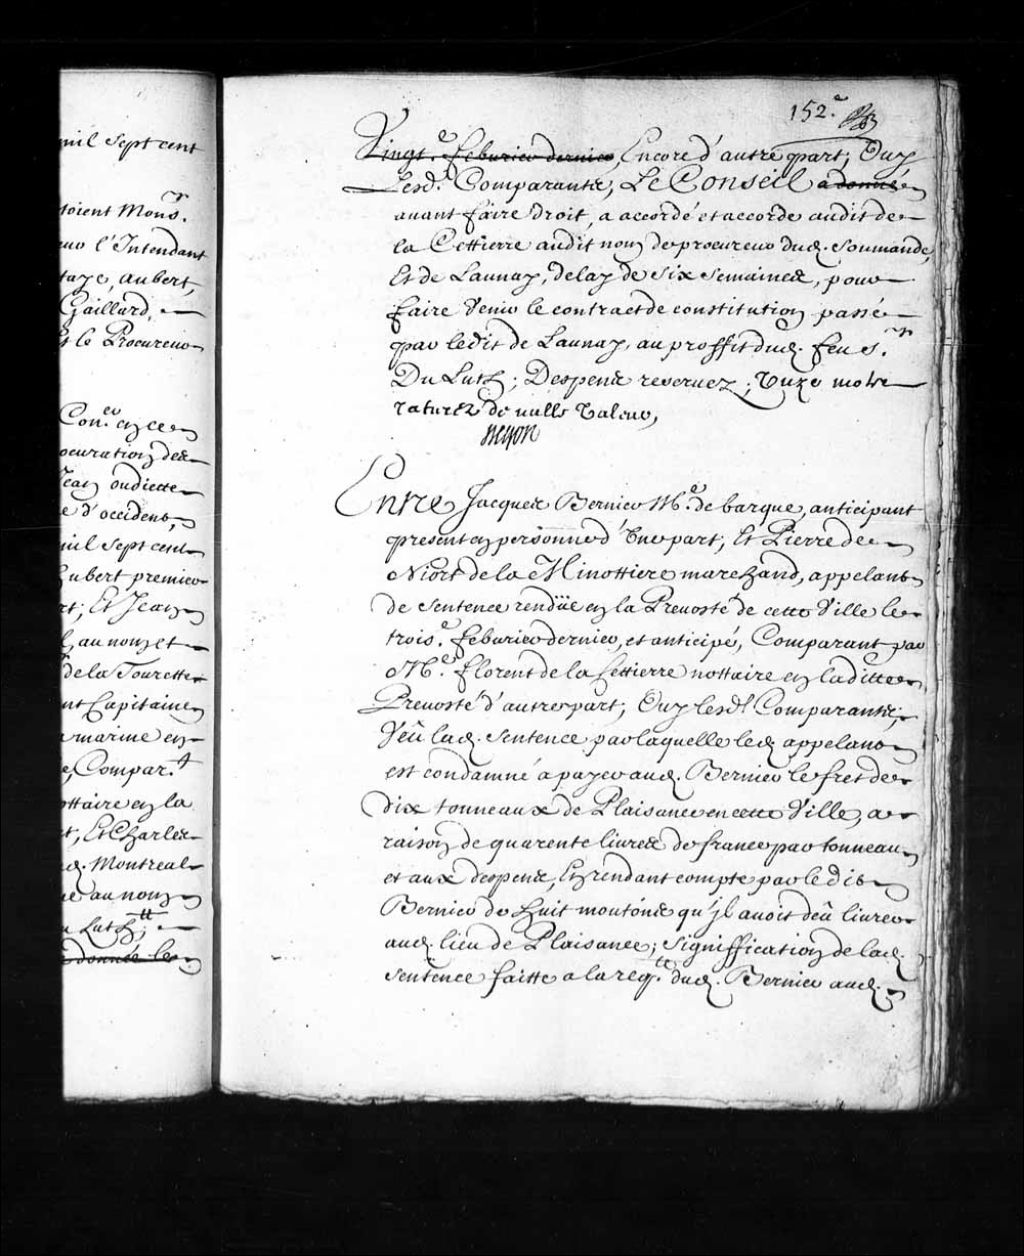 mil sept cent
toient Mons.r
l'Intendant
aubert,
Gaillard,
Et le Procureur
Con.er en ce
ocuration des
oudiette
e d'occident,
mil sept cent
aubert premier
rt; Et Jean
au nom et
de la Tourette
nt Capitaine
marine en
Compar.t
ottaire en la
t, Et Charles
Montreal
au nom
Luth;
donné les
152.e
Vingt.e feburier dernier, Encore d'autre part; Ouy
Lesd.t Comparants; Le Conseil a donné
auant faire droit, a accordé et accorde audit de
la Cettierre audit nom de procureur dud. Soumande,
Et de Launay, delay de six semaines, pour
faire Venir le contract de constitution passé
par ledit de Launay, au proffit dud. feu s.r
Du Luth; Despens reservez; Unze mots
raturez de nulle Valeur,
Entre Jacques Bernier M.e de barque, anticipant
present en personne d'Une part; Et Pierre de
Niort de la Minottiere marchand, appelant
de sentence rendüe en la Prevosté de cette Ville le
trois.e feburier dernier, et anticipé, Comparant par
M.e florent de la Cettierre nottaire en la ditte
Prevosté d'autre part; Ouy lesd.t Comparants;
Veû lad. sentence par laquelle led. appelant
est condamné a payer aud. Bernier le fret de
dix tonneaux de Plaisance en cette Ville, a
raison de quarente livres de france par tonneau
et aux despens, En rendant compte par le dit
Bernier de huit moutons qu'jl auoit deû livrer
aud. lieu de Plaisance; signiffication de lad.
sentence faitte a la req.tte dud. Bernier aud.